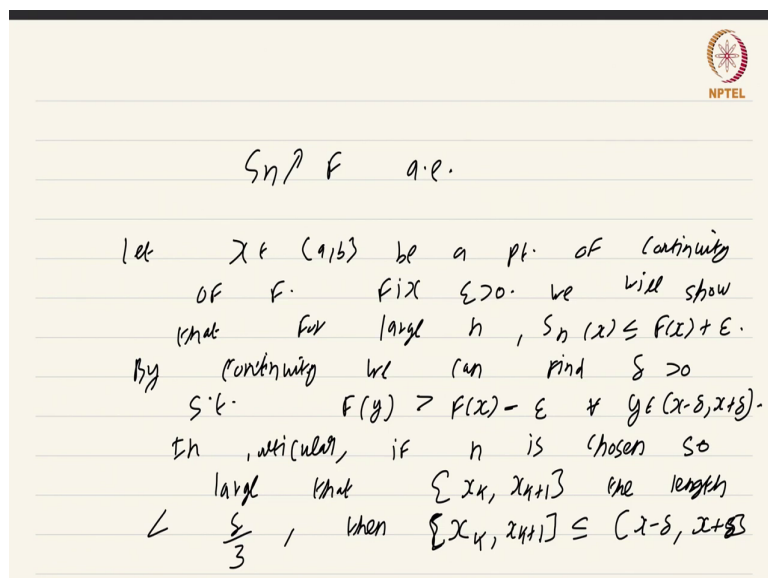 NPTEL
Sn↗ F a.e.
Let x ∈ (a,b] be a pt. of continuity
of F. Fix ε>0. We will show
that for large n, Sn(x) ≤ F(x)+ε.
By continuity we can find δ>0
s.t. F(y) > F(x)-ε ∀ y∈(x-δ,x+δ).
In , if n is chosen so
large that [xk, xk+1] the length
< δ/3, then [xk, xk+1] ⊆ (x-δ, x+δ)